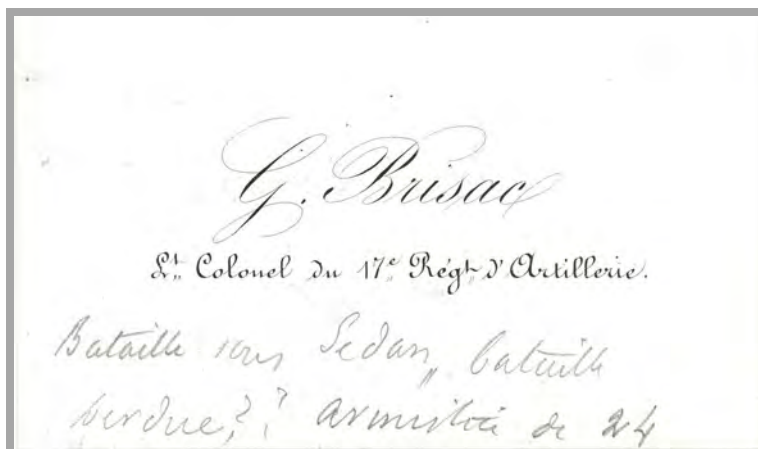 G. Brisac
Lt. Colonel du 17e Régt. d'Artillerie.
Bataille sous Sedan,, bataille
perdue?? armistice de 24